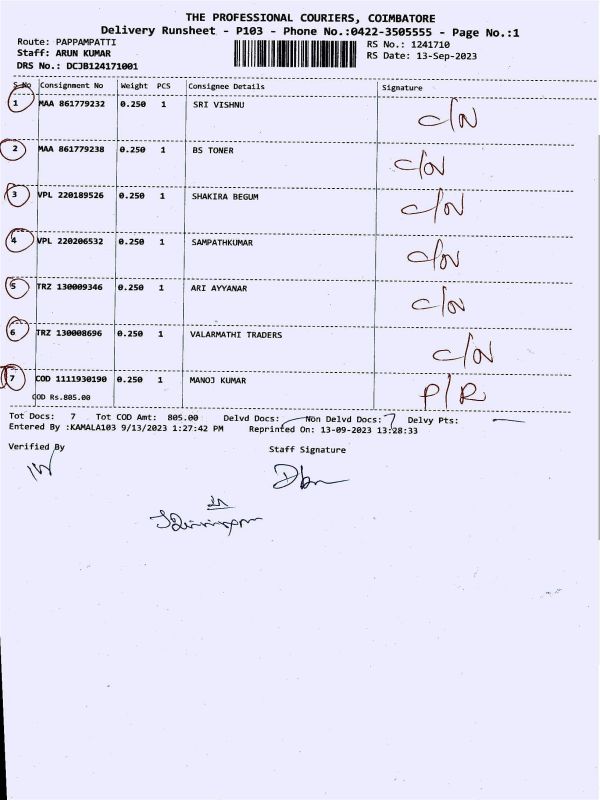 THE PROFESSIONAL COURIERS, COIMBATORE
Delivery Runsheet - P103 - Phone No.:0422-3505555 - Page No.:1
Route: PAPPAMPATTI RS No.: 1241710
Staff: ARUN KUMAR RS Date: 13-Sep-2023
DRS No.: DCJB124171001
S No Consignment No Weight PCS Consignee Details Signature
1 MAA 861779232 0.250 1 SRI VISHNU C/N
2 MAA 861779238 0.250 1 BS TONER C/N
3 VPL 220189526 0.250 1 SHAKIRA BEGUM C/N
4 VPL 220206532 0.250 1 SAMPATHKUMAR C/N
5 TRZ 130009346 0.250 1 ARI AYYANAR C/N
6 TRZ 130008696 0.250 1 VALARMATHI TRADERS C/N
7 COD 1111930190 0.250 1 MANOJ KUMAR P/R
COD Rs.805.00
Tot Docs: 7 Tot COD Amt: 805.00 Delvd Docs: Non Delvd Docs: 7 Delvy Pts:
Entered By :KAMALA103 9/13/2023 1:27:42 PM Reprinted On: 13-09-2023 13:28:33
Verified By Staff Signature